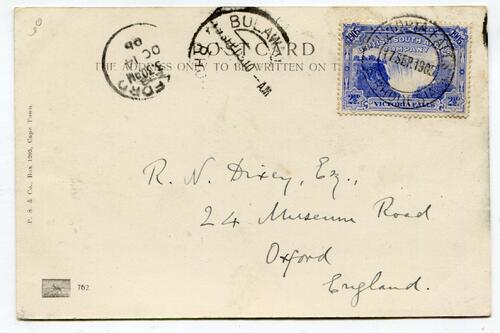 POST CARD
THE ADDRESS ONLY TO BE WRITTEN ON T
BULAWA
RHO
AM
OXFORD
OC 14
05
1905 1905
SOUTH
COMPANY
VICTORIA FALLS
SEP 1905
2½ᵈ VICTORIA FALLS 2½ᵈ
R. N. Dixey, Esq.,
24 Museum Road
Oxford
England.
P. S. & Co., Box 1205, Cape Town.
762